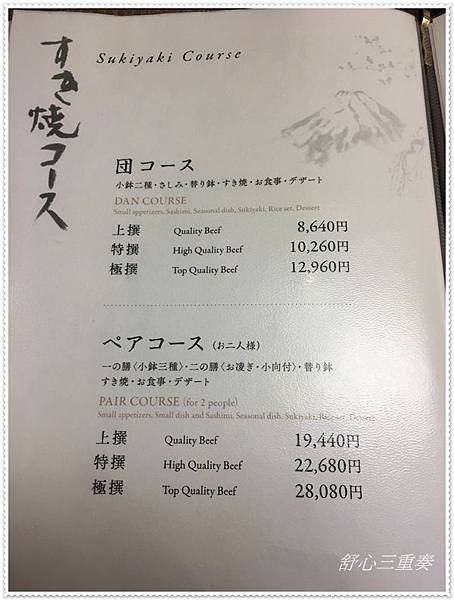 すき焼コース
Sukiyaki Course
団コース
小鉢二種・さしみ・替り鉢・すき焼・お食事・デザート
DAN COURSE
Small appetizers, Sashimi, Seasonal dish, Sukiyaki, Rice set, Dessert
上撰 Quality Beef 8,640円
特撰 High Quality Beef 10,260円
極撰 Top Quality Beef 12,960円
ペアコース（お二人様）
一の膳〈小鉢三種〉・二の膳〈お凌ぎ・小向付〉・替り鉢
すき焼・お食事・デザート
PAIR COURSE (for 2 people)
Small appetizers, Small dish and Sashimi, Seasonal dish, Sukiyaki, Rice set, Dessert
上撰 Quality Beef 19,440円
特撰 High Quality Beef 22,680円
極撰 Top Quality Beef 28,080円
舒心三重奏